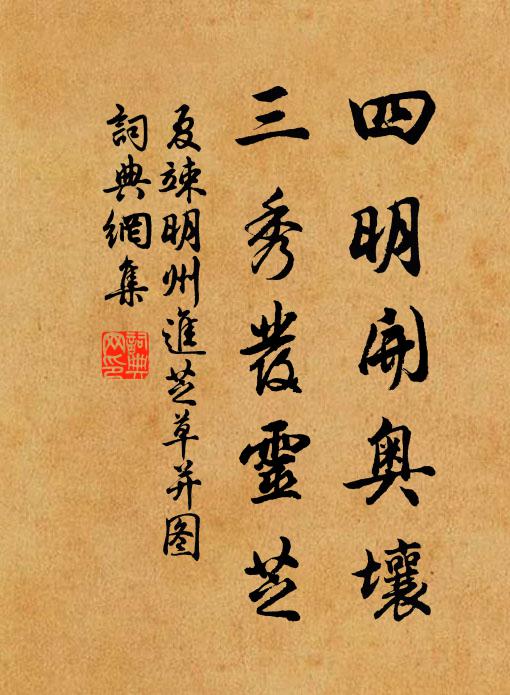 四明開奥壤
三秀發靈芝
夏竦明州進芝草并图
詞典網集
詞典网印